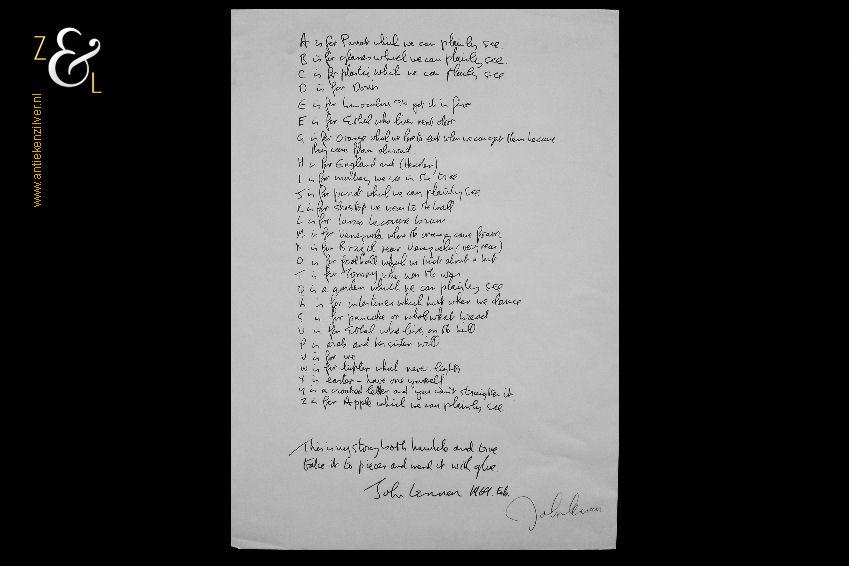 Z & L
www.antiekenzilver.nl
A is for Parrot which we can plainly see
B is for glasses which we can plainly see.
C is for plastic which we can plainly see
D is for Doris
E is for binoculars get it in five
F is for Ethel who lives next door
G is for Orange which we love to eat when we can get them because
they come from abroad.
H is for England and (Heather)
I is for monkey we see in the tree
J is for parrot which we can plainly see
K is for shoetop we wear to the ball
L is for because brown
M is for Venezuela where the oranges come from
N is for Brazil near Venezuela (very near)
O is for football which we kick about a bit
T is for Tommy who won the war
Q is a garden which we can plainly see
R is for intestines which hurt when we dance
S is for pancake or wholewheat bread
U is for Ethel who lives on the hill
P is arab and her sister will
V is for me
W is for lighter which never lights
X is easter – have one yourself
Y is a crooked letter and you can't straighten it
Z is for Apple which we can plainly see
This is my story both humble and true
take it to pieces and mend it with glue
John Lennon 1969. Feb.
John Lennon